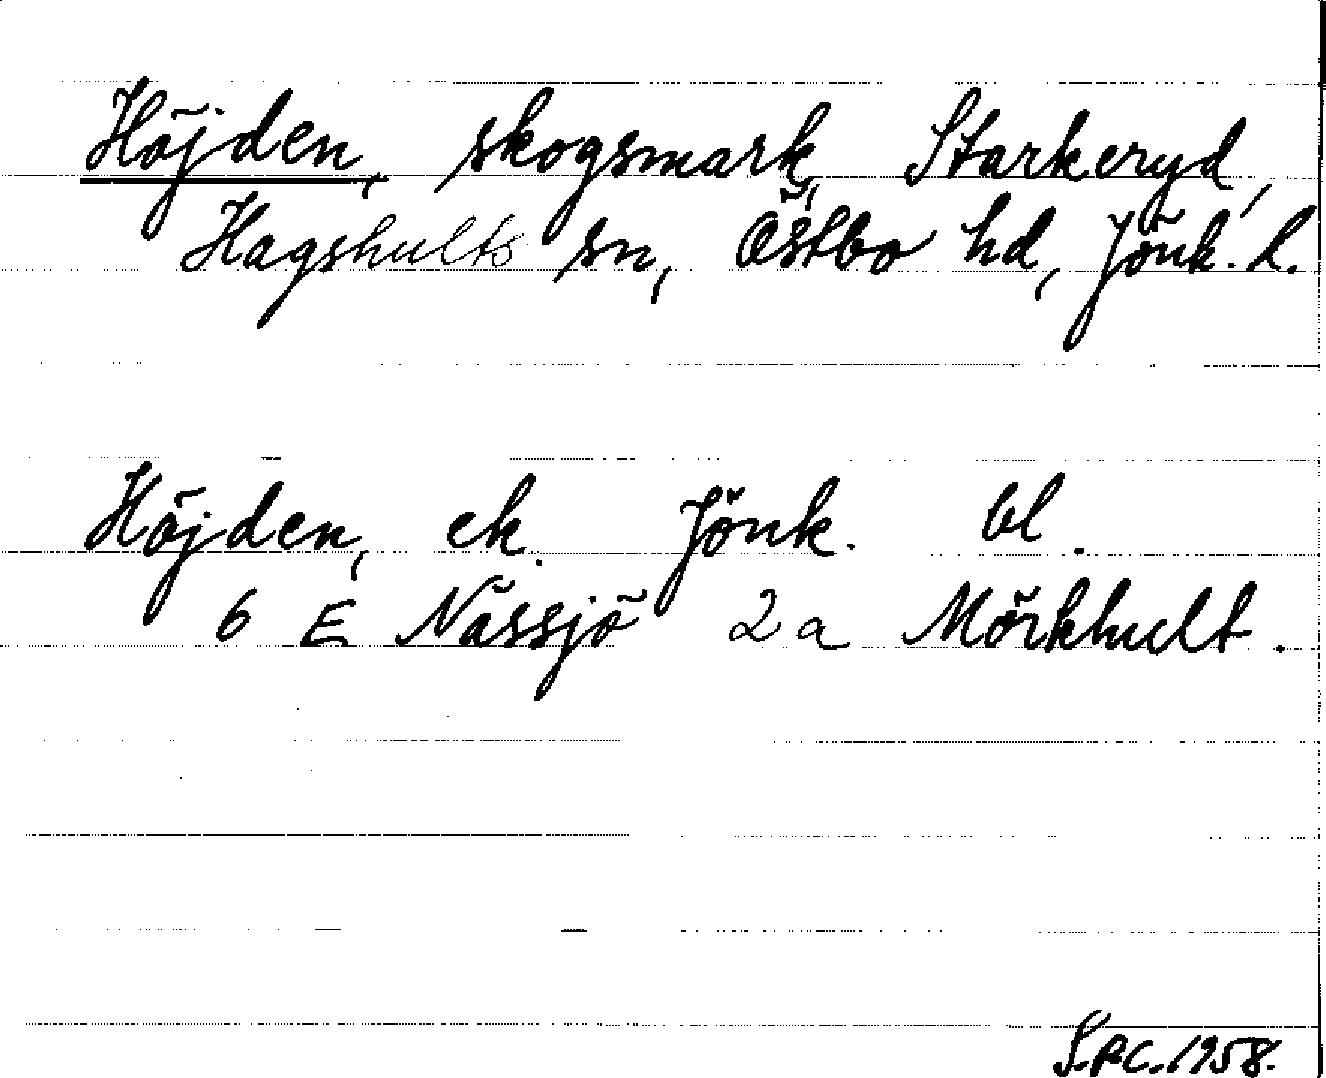 Höjden, skogsmark, Starkeryd,
Hagshults sn, Östbo hd, Jönk. l.
Höjden, ek. Jönk. bl.
6 E Nässjö 2a Mörkhult.
S.P.C. 1958.